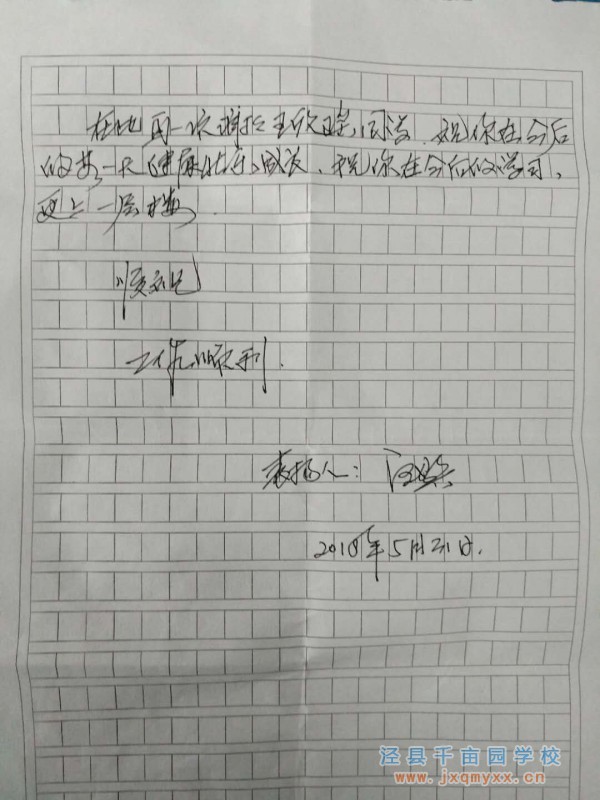 在此再一次谢谢王欣同学，祝你在今后
的每一天健康快乐成长，祝你在今后的学习，
更上一层楼。
顺祝
工作顺利.
表扬人：汪
2018年5月31日.
泾县千亩园学校
www.jxqmyxx.cn